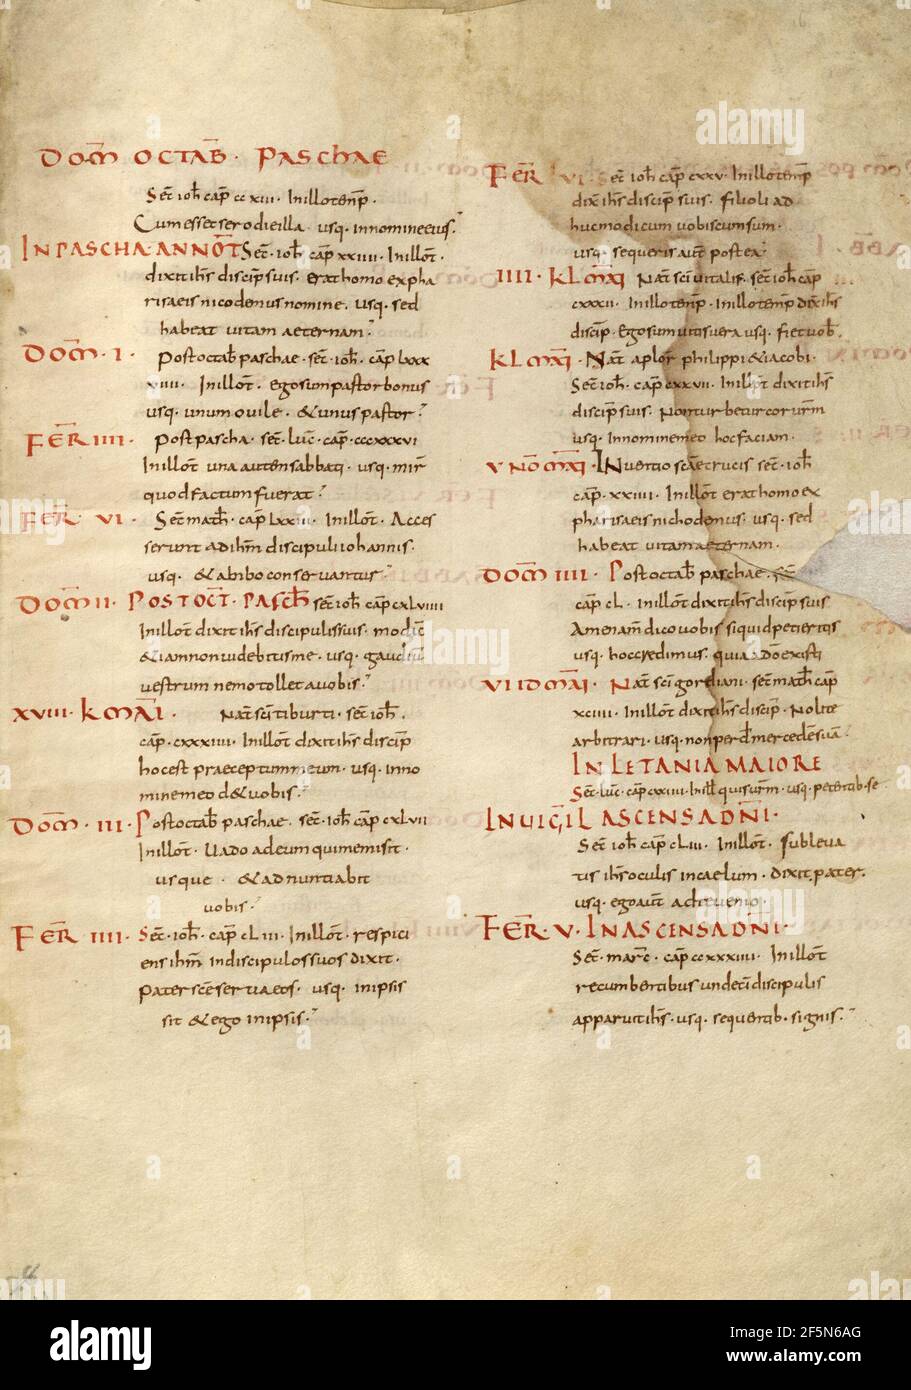 DOM̄ OCTAB̄ · PASCHAE
Sec̄ ioh̄ cap̄ cc xiii · Inillotemp̄
Cumessetserodieilla · usq· innomineeius
INPASCHA·ANNOT̄ Sec̄ · ioh̄ cap̄ xxiiii · Inillot̄ ·
dixitih̄s discip̄suis · erathomo expha
risaeis nicodemusnomine · usq· sed
habeat uitam aeternam
DOM̄ · I · Postoctab̄ paschae · sec̄ · ioh̄ · cap̄ lxxx
viiii · Inillot̄ · egosumpastorbonus
usq· unumouile · &unus pastor
FER̄ IIII · Postpascha · sec̄ · luc̄ · cap̄ · cccxxxvi
Inillot̄ una autemsabbati · usq· mir̄
quodfactumfuerat
FER̄ VI · Sec̄ math̄ · cap̄ lxxiii · Inillot̄ · Acces
serunt adih̄m discipuliiohannis ·
usq· &ambo conseruantur
DOM̄ II · POSTOCT̄ · PASCH̄ sec̄ ioh̄ cap̄ cxlviiii
Inillot̄ dixitih̄s discipulissuis · modic̄
&iamnonuidebitisme · usq· gaudiū
uestrum nemotolletauobis
XVIII · K MAĪ · Nat̄ sc̄i tiburti · sec̄ ioh̄ ·
cap̄ · cxxxiiii · Inillot̄ dixitih̄s discip̄
hocest praeceptummeum · usq· inno
minemeo d&uobis
DOM̄ · III · Postoctab̄ paschae · sec̄ · ioh̄ cap̄ cxlvii
Inillot̄ · Uado adeum quimemisit ·
usque · &adnuntiabit
uobis
FER̄ IIII · Sec̄ · ioh̄ · cap̄ cliii · Inillot̄ · respici
ens ih̄m indiscipulossuos dixit ·
Pater sc̄e seruaeos · usq· inipsis
sit &ego inipsis
FER̄ VI · Sec̄ ioh̄ · cap̄ cxxv · Inillotemp̄
dixih̄s discip̄ suis · filioli ad
hucmodicum uobiscumsum ·
usq· sequeris aut̄ postea
IIII · KL MAĪ Nat̄ sc̄i uitalis · sec̄ ioh̄ cap̄
cxxxii · Inillotemp̄ · Inillotemp̄ dix̄ih̄s
discip̄ · Egosumuitisuera usq· fietuob̄
KL MAĪ · Nat̄ aplor̄ philippi &iacobi ·
Sec̄ ioh̄ · cap̄ cxxvii · Inillot̄ dixitih̄s
discip̄suis · Nonturbeturcoruestrm̄
usq· Innominemeo hocfaciam ·
V NON̄ MAĪ · Inuentio sc̄aecrucis sec̄ · ioh̄
cap̄ · xxiiii · Inillot̄ erathomoex
pharisaeis nichodemus · usq· sed
habeat uitamaeternam ·
DOM̄ IIII · Postoctab̄ paschae · sec̄
cap̄ cl · Inillot̄ dixitih̄s discip̄ suis
Amenam̄ dicouobis siquidpetieritis
usq· hoccredimus · quia adō existi
VII ID MAĪ · Nat̄ sc̄i gordiani · sec̄ math̄ cap̄
xciiii · Inillot̄ dixitih̄s discip̄ · Nolite
arbitrari · usq· nonperd̄ mercedēsuā
IN LETANIA MAIORE
Sec̄ · luc̄ · cap̄ cxxiiii · Inill̄ quisurm̄ · usq· petentib· se
INUIGIL̄ ASCENSADNĪ ·
Sec̄ ioh̄ cap̄ cliii · Inillot̄ · subleua
tis ih̄s oculis incaelum · dixit, pater ·
usq· egoaut̄ adteuenio ·
FER̄ · V · INASCENSADNĪ ·
Sec̄ · marc̄ · cap̄ ccxxxiiii · Inillot̄
recumbentibus undecī discipulis
apparuitih̄s · usq· sequentib · signis
alamy
Image ID: 2F5N6AG
www.alamy.com